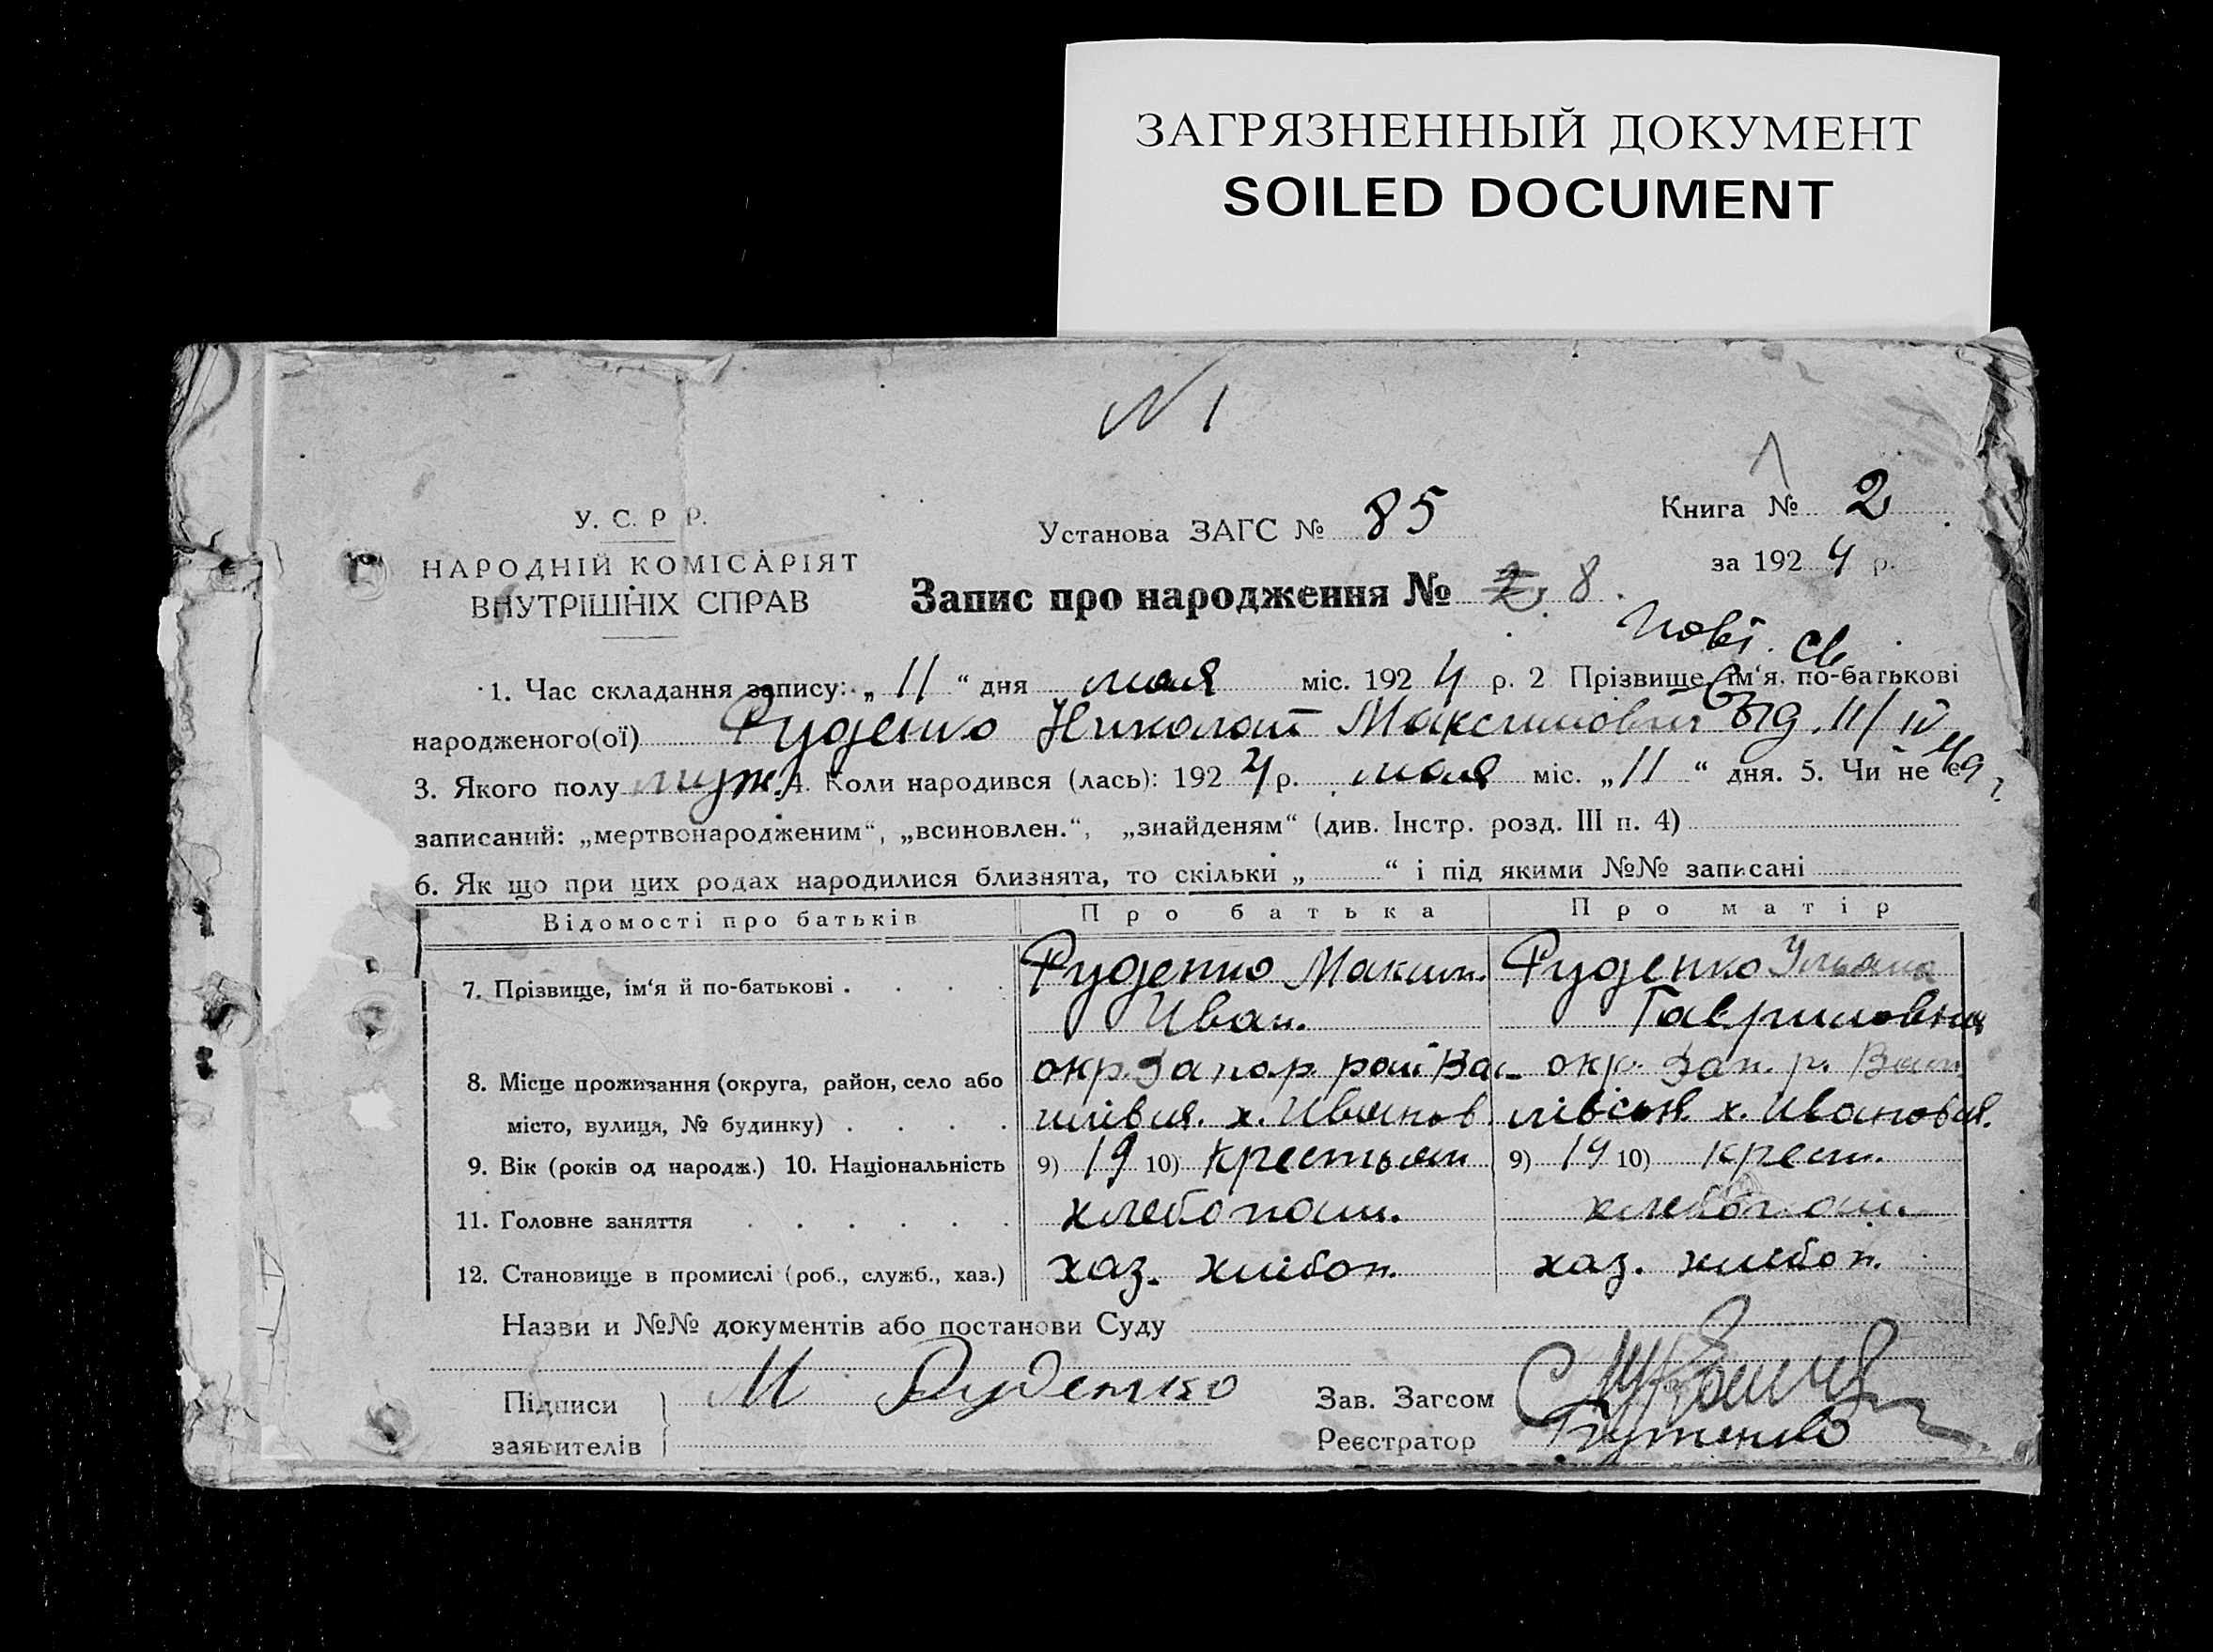 ЗАГРЯЗНЕННЫЙ ДОКУМЕНТ
SOILED DOCUMENT
N 1
У. С. Р Р.
НАРОДНІЙ КОМІСАРІЯТ
ВНУТРІШНІХ СПРАВ
Установа ЗАГС № 85
Книга № 2
за 1924 р.
Запис про народження № 8.
Повт. св
1. Час складання запису: „11“ дня мая міс. 1924 р. 2 Прізвище, ім‘я, по-батькові
народженого(ої) Руденко Николай Максимович 11/IV
3. Якого полу муж. 4. Коли народився (лась): 1924 р. мая міс. „11“ дня. 5. Чи не є
записаний: „мертвонародженим“, „всиновлен.“, „знайденям“ (див. Інстр. розд. III п. 4)
6. Як що при цих родах народилися близнята, то скільки „ “ і під якими №№ записані
Відомості про батьків Про батька Про матір
7. Прізвище, ім‘я й по-батькові . . . . Руденко Максим. Руденко Ульяна
Иван. Гавриловна
8. Місце проживання (округа, район, село або окр. Запор. рай Ва- окр. Зап. р. Васи
місто, вулиця, № будинку) . . . . х. Иванов. х. Ивановка.
9. Вік (років од народж.) 10. Національність 9) 19 10) крестьян 9) 19 10) крест.
11. Головне заняття . . . . . . хлебопаш. хлебопаш.
12. Становище в промислі (роб., служб., хаз.) хаз. хлебоп. хаз. хлебоп.
Назви и №№ документів або постанови Суду
Підписи М Руденко Зав. Загсом
заявителів Реєстратор